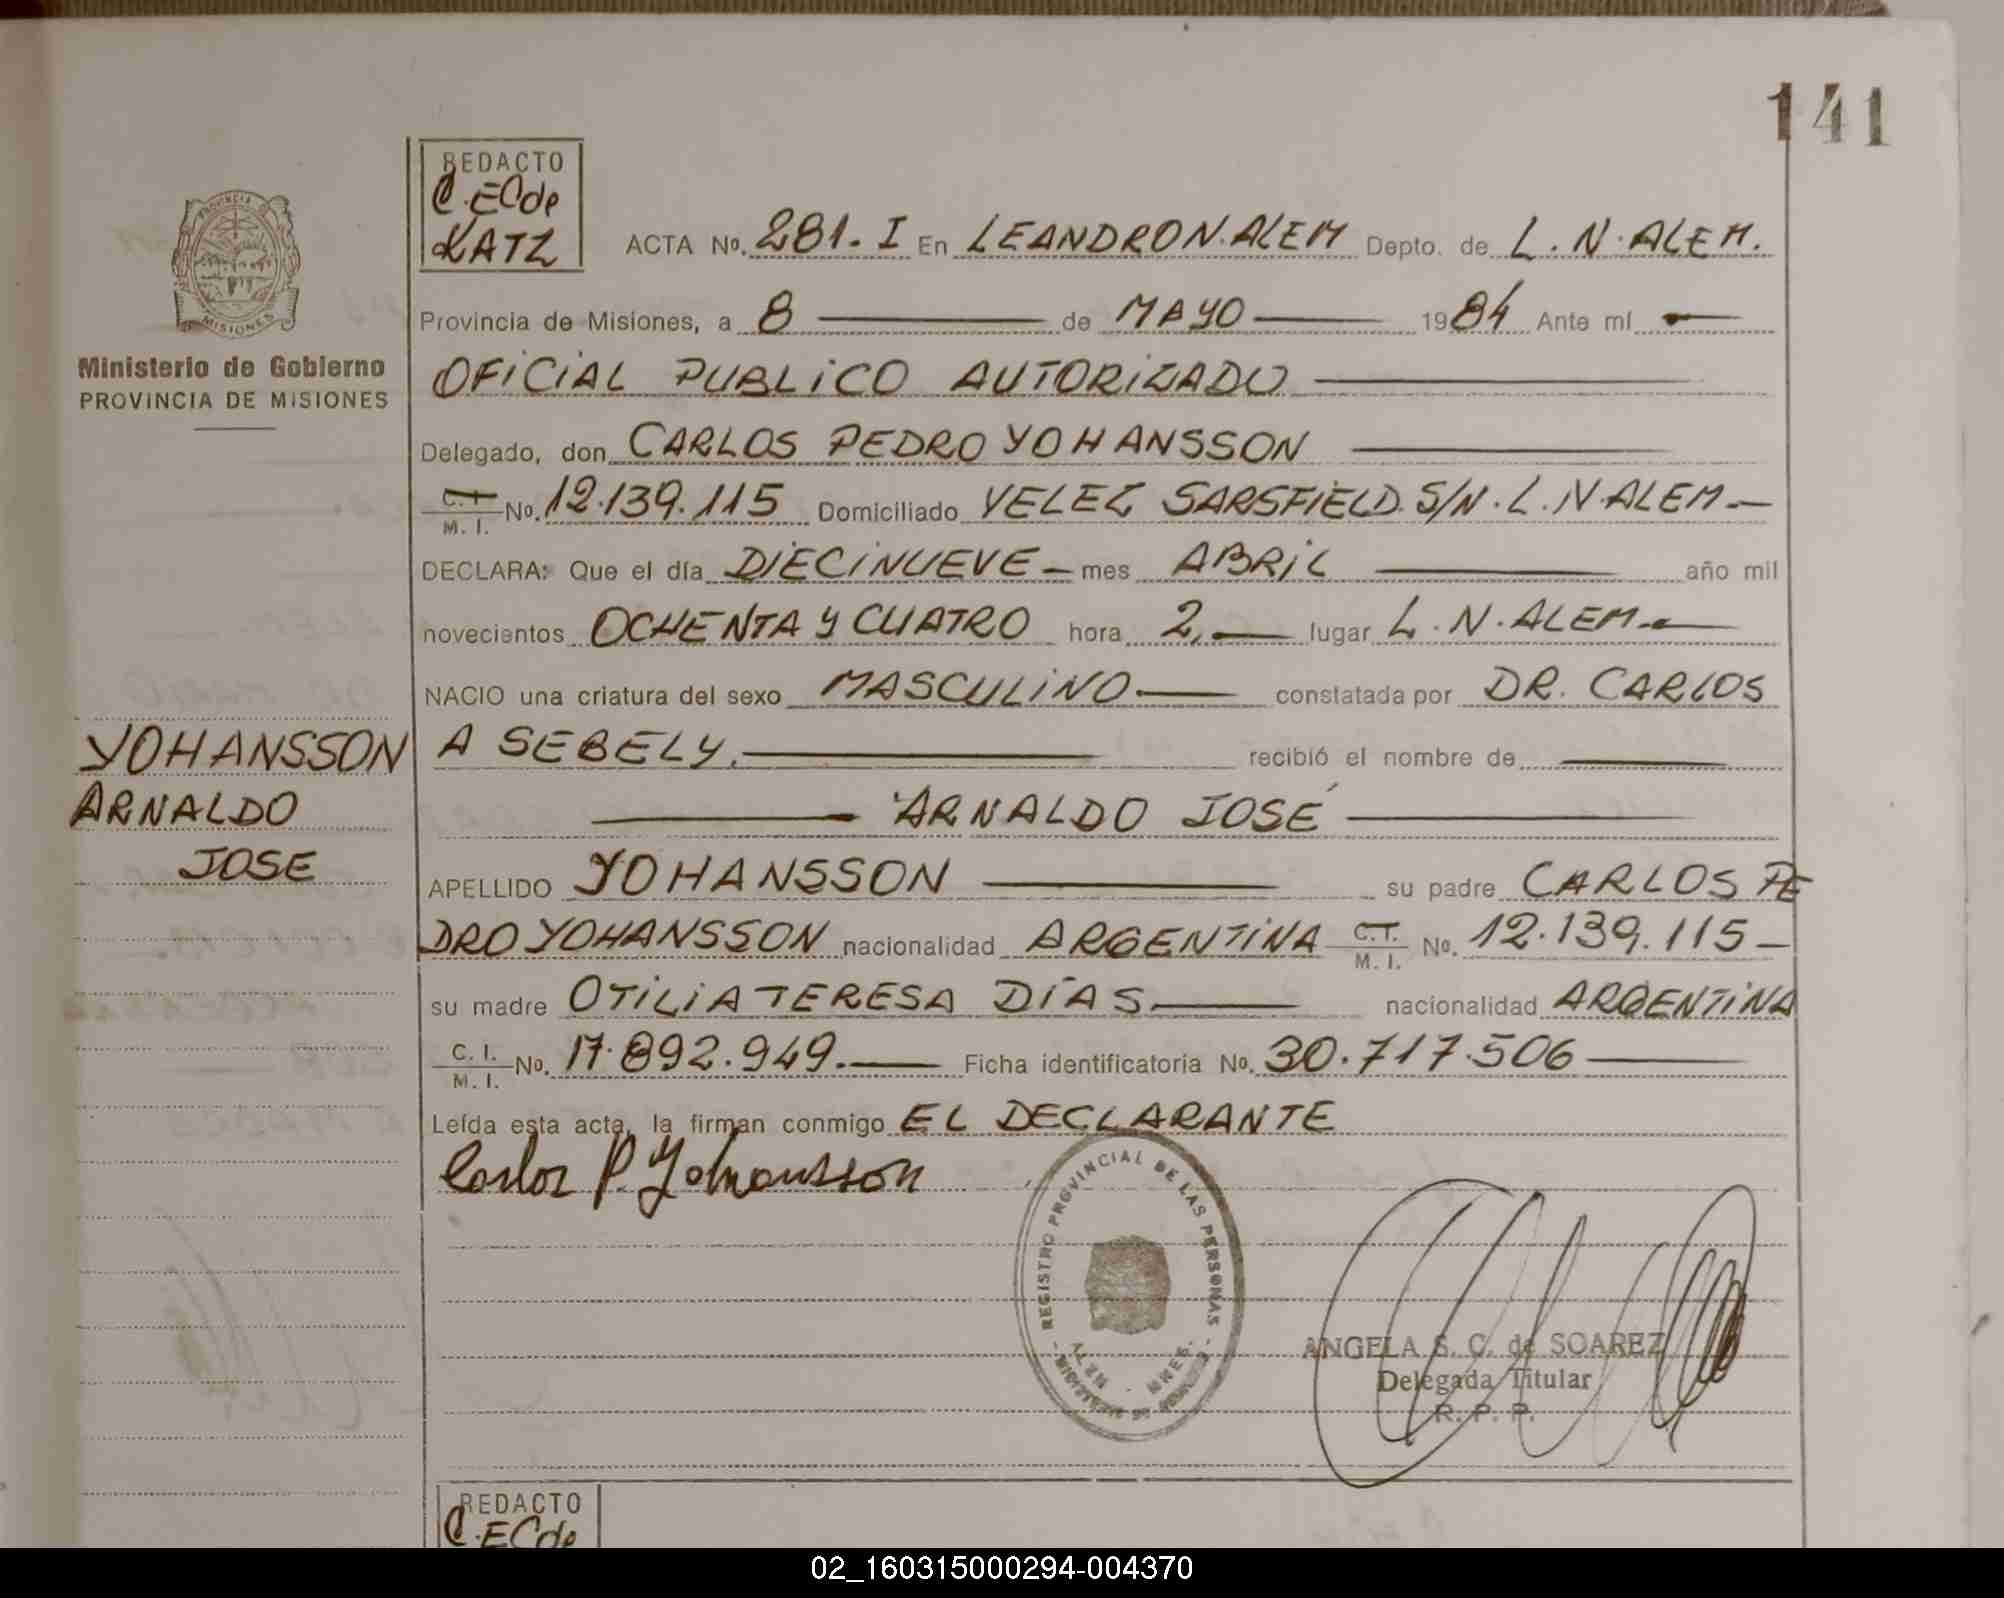 141
REDACTO
C.ECde
KATZ
PROVINCIA DE
MISIONES
Ministerio de Gobierno
PROVINCIA DE MISIONES
ACTA No. 281. I En LEANDRO N. ALEM Depto. de L. N. ALEM.
Provincia de Misiones, a 8 de MAYO 1984 Ante mí
OFICIAL PUBLICO AUTORIZADO
Delegado, don CARLOS PEDRO YOHANSSON
C.I. M. I. No. 12.139.115 Domiciliado VELEZ SARSFIELD. S/N. L. N. ALEM
DECLARA: Que el día DIECINUEVE mes ABRIL año mil
novecientos OCHENTA Y CUATRO hora 2, lugar L. N. ALEM.
NACIO una criatura del sexo MASCULINO constatada por DR. CARLOS
A SEBELY. recibió el nombre de
ARNALDO JOSÉ
YOHANSSON
ARNALDO
JOSE
APELLIDO YOHANSSON su padre CARLOS PE
DRO YOHANSSON nacionalidad ARGENTINA C.I. M. I. No. 12.139.115
su madre OTILIA TERESA DÍAS nacionalidad ARGENTINA
C. I. M. I. No. 17.892.949. Ficha identificatoria No. 30.717.506
Leída esta acta, la firman conmigo EL DECLARANTE
Carlos P. Yohansson
REGISTRO PROVINCIAL DE LAS PERSONAS
ALEM MNES.
ANGELA S. C. de SOAREZ
Delegada Titular
R. P. P.
REDACTO
C.ECde
02_160315000294-004370